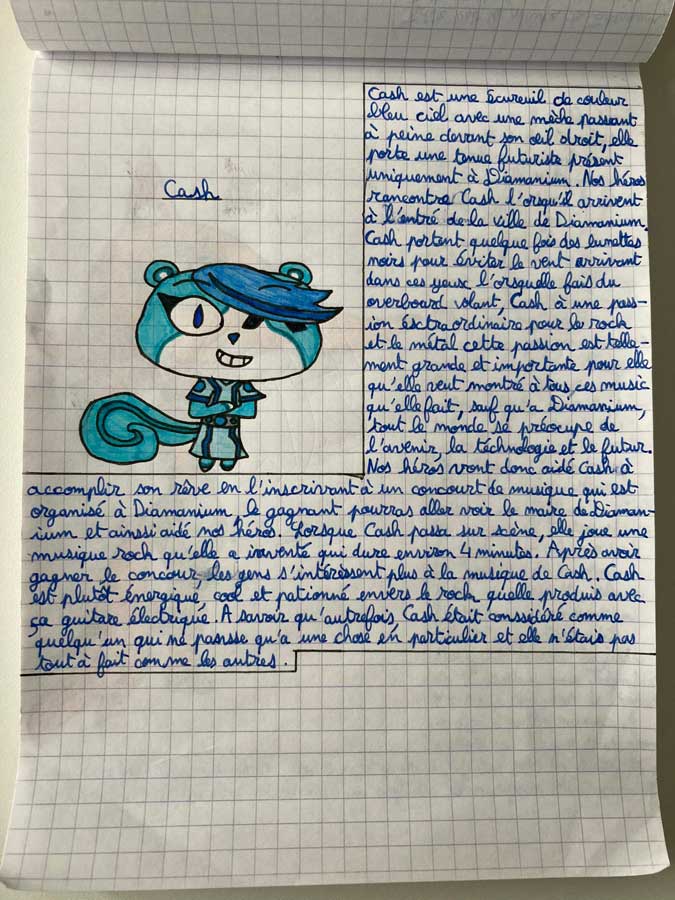 Cash
Cash est une écureuil de couleur
bleu ciel avec une mèche passant
à peine devant son œil droit, elle
porte une tenue futuriste présent
uniquement à Diamanium. Nos héros
rencontre Cash l'orsqu'il arrivent
à l'entré de la ville de Diamanium.
Cash portent quelque fois des lunettes
noirs pour éviter le vent arrivant
dans ces yeux l'orsquelle fais du
overboard volant, Cash à une pass-
ion ésctraordinaire pour le rock
et le métal cette passion est telle-
ment grande et importante pour elle
qu'elle veut montré à tous ces music
qu'elle fait, sauf qu'a Diamanium,
tout le monde se préocupe de
l'avenir, la téchnologie et le futur.
Nos héros vont donc aidé Cash à
accomplir son rêve en l'inscrivant à un concourt de musique qui est
organisé à Diamanium, le gagnant pourras aller voir le maire de Diaman-
ium et ainssi aidé nos héros. Lorsque Cash passa sur scène, elle joue une
musique rock qu'elle a inventé qui dure environ 4 minutes. Après avoir
gagner le concour, les gens s'intéressent plus à la musique de Cash. Cash
est plutôt énergique, cool et pationné envers le rock quelle produis avec
ça guitare électrique. A savoir qu'autrefois, Cash était conssidéré comme
quelqu'un qui ne pansse qu'a une chose en particulier et elle n'étais pas
tout à fait comme les autres.